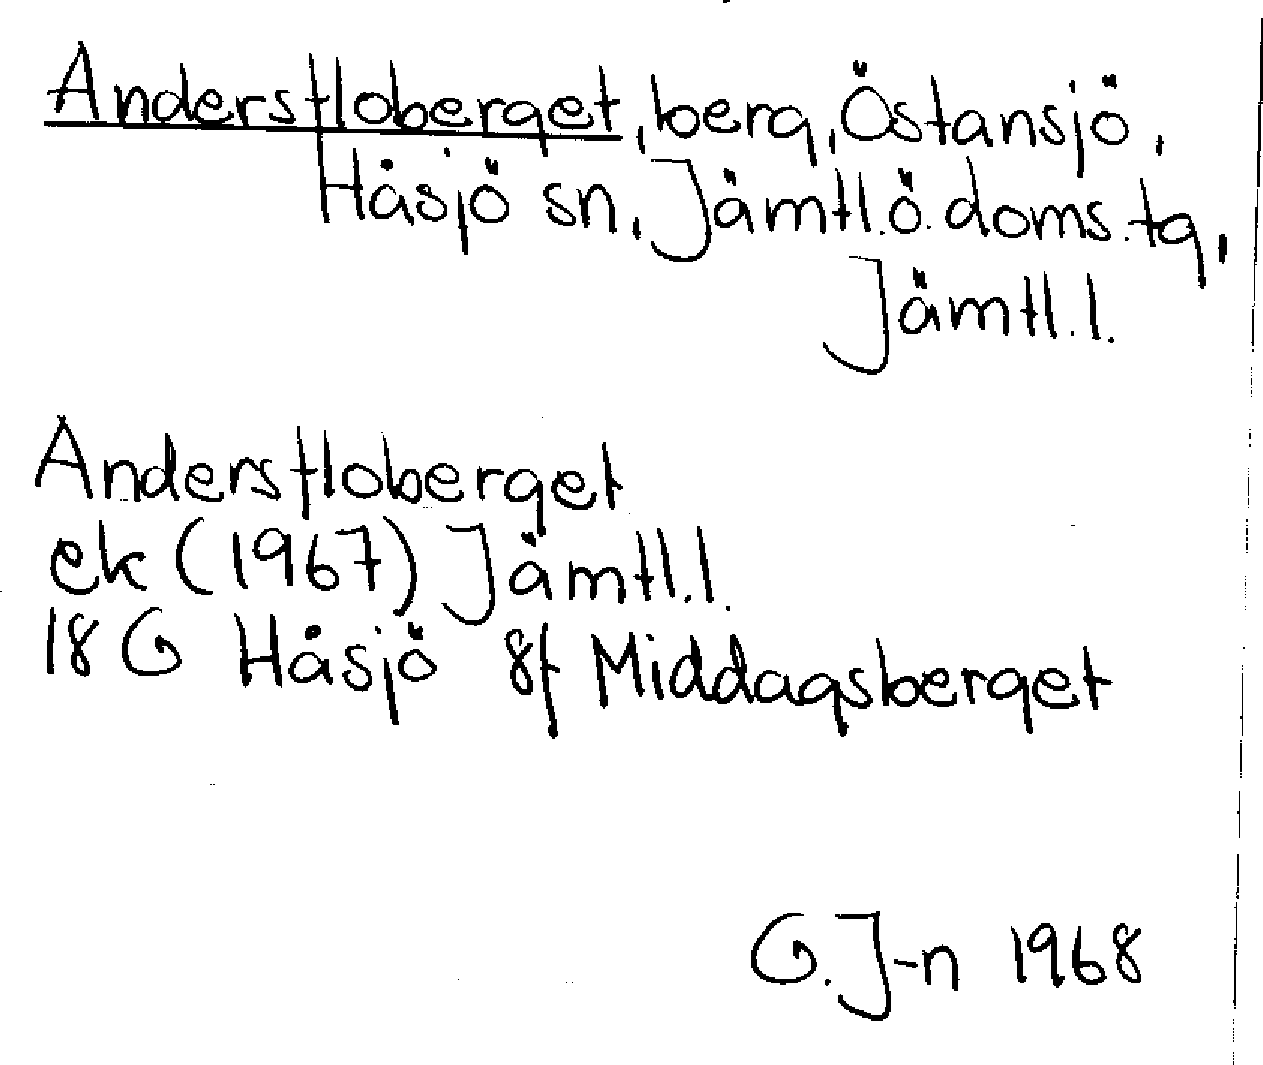 Andersfloberget, berg, Östansjö,
Håsjö sn, Jämtl.ö.doms.tg,
Jämtl.l.
Andersfloberget
ek (1967) Jämtl.l.
18G Håsjö 8f Middagsberget
G.J-n 1968